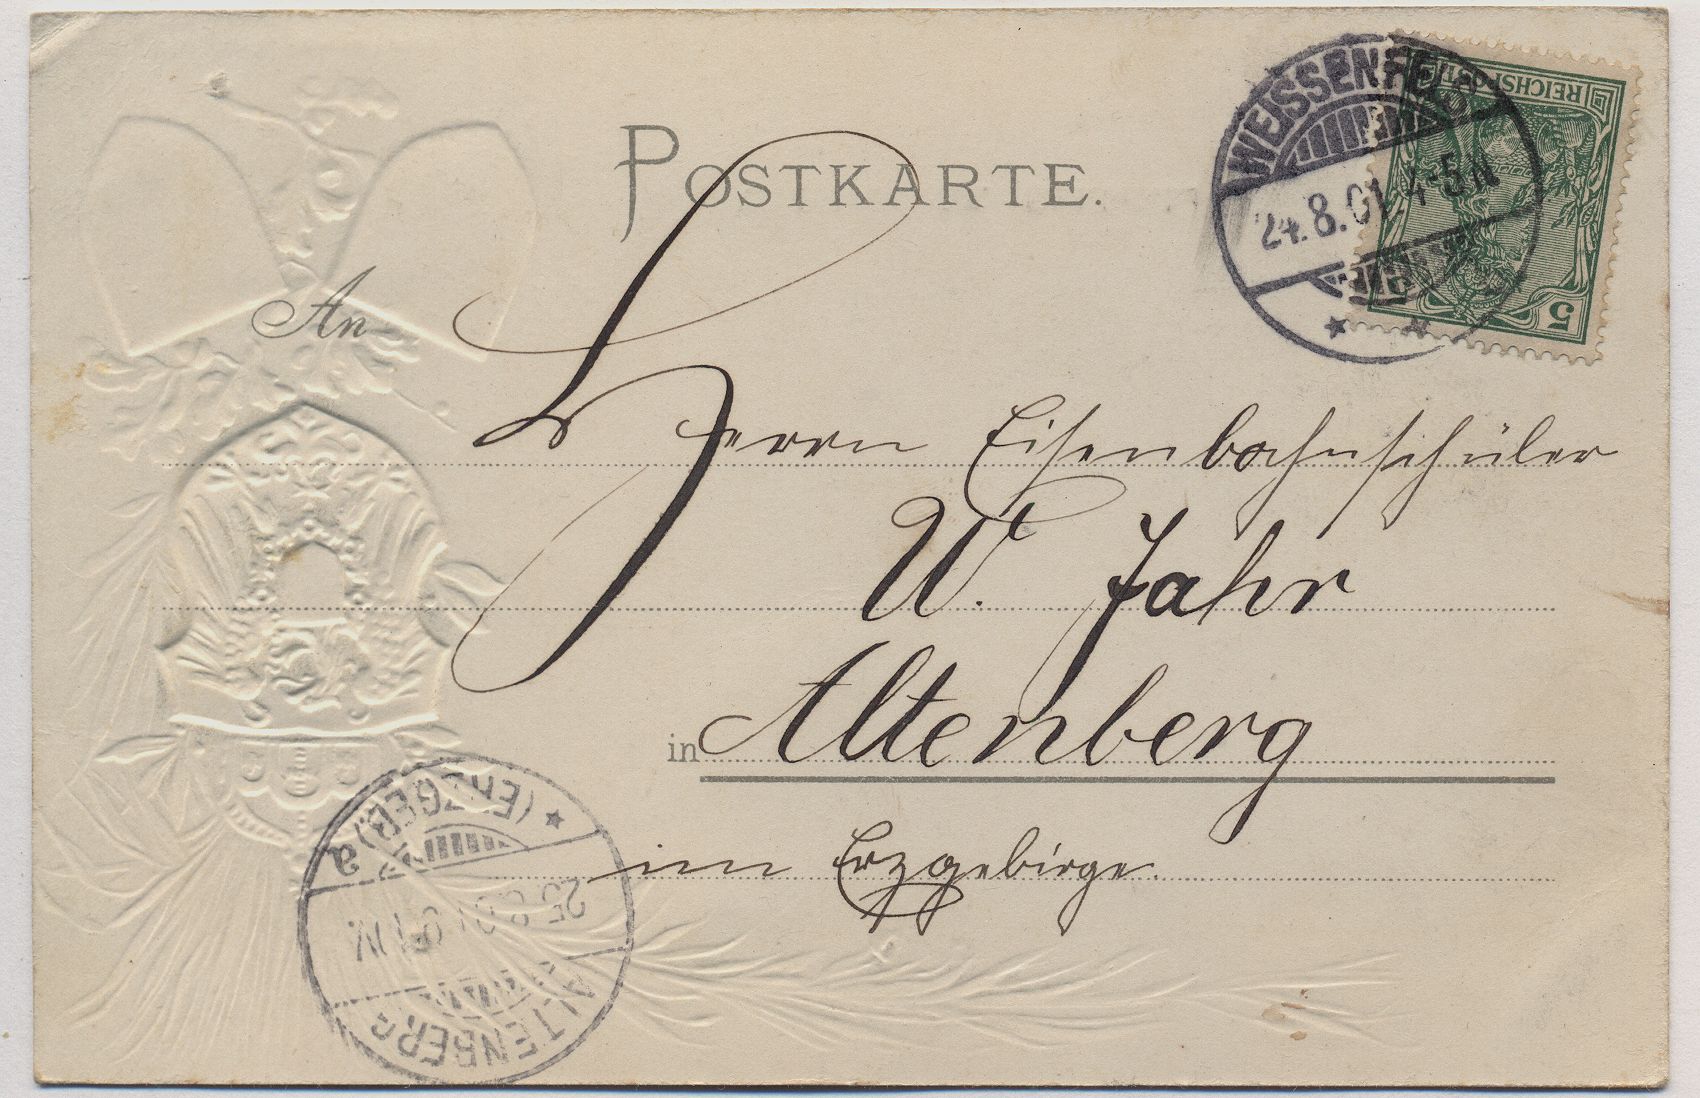 POSTKARTE.
WEISSENFELS
24.8.01. 4-5N
REICHSPOST
5
An
Herrn Eisenbahnschüler
W. Jahr
in Altenberg
im Erzgebirge.
ALTENBERG
25.8.01
(ERZGEB.) a